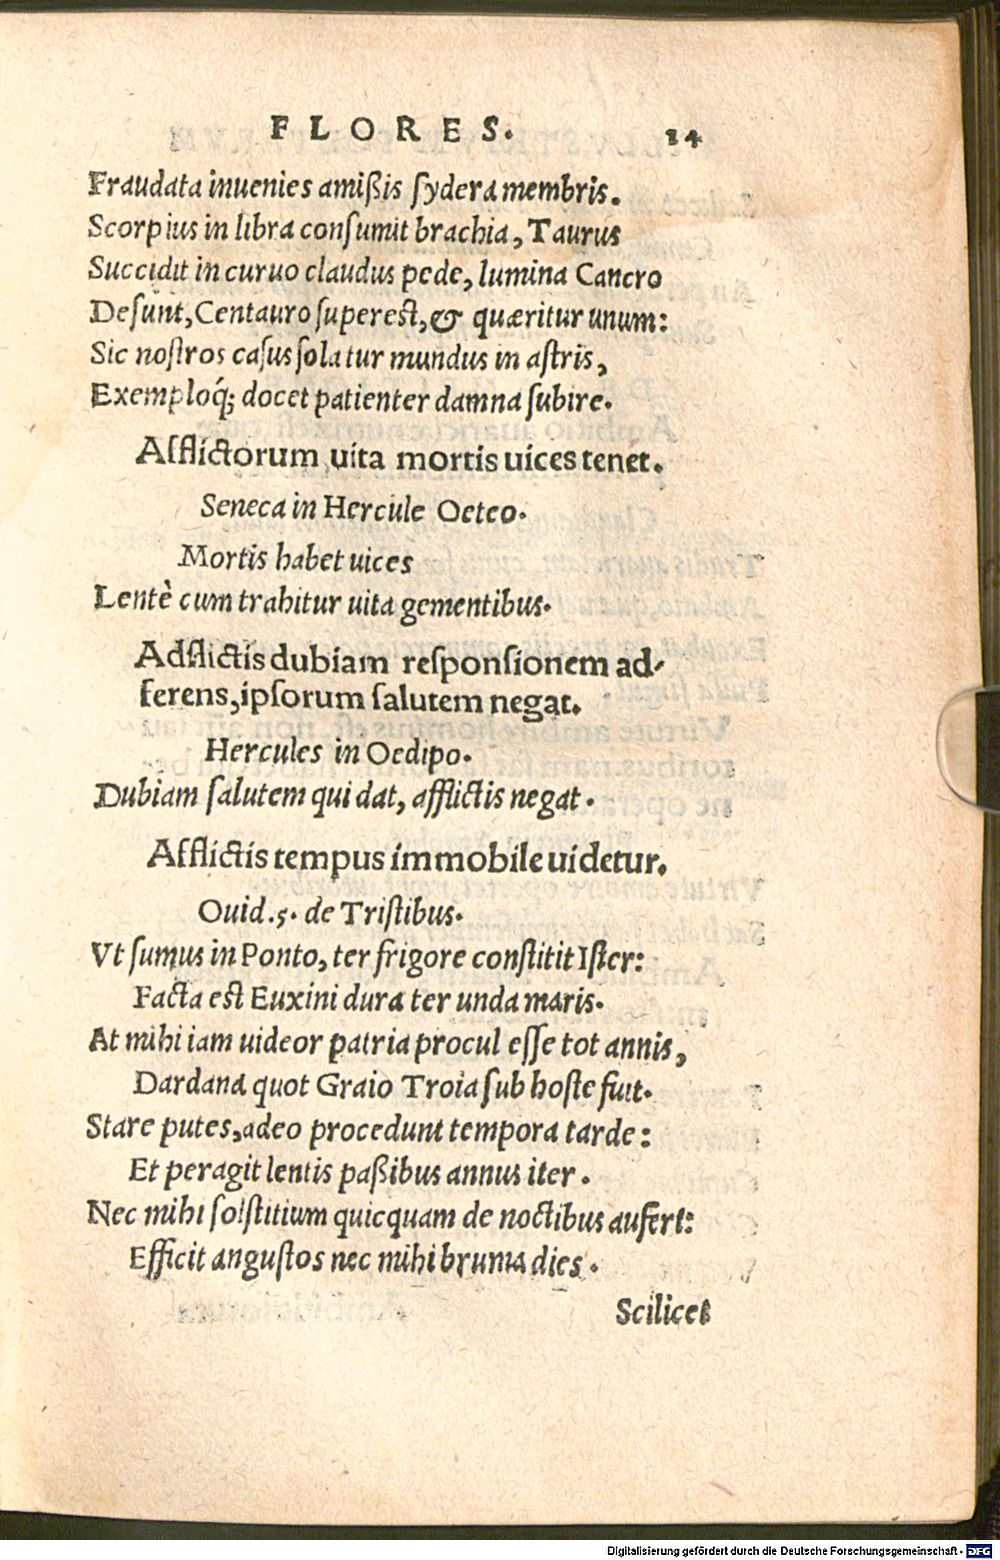 FLORES. 14
Fraudata inuenies amißis ſydera membris.
Scorpius in libra conſumit brachia, Taurus
Succidit in curuo claudus pede, lumina Cancro
Deſunt, Centauro ſupereſt, & quæritur unum:
Sic noſtros caſus ſolatur mundus in aſtris,
Exemploq́; docet patienter damna ſubire.
Afflictorum uita mortis uices tenet.
Seneca in Hercule Oeteo.
Mortis habet uices
Lentè cum trahitur uita gementibus.
Adflictis dubiam reſponſionem ad-
ferens, ipſorum ſalutem negat.
Hercules in Oedipo.
Dubiam ſalutem qui dat, afflictis negat.
Afflictis tempus immobile uidetur.
Ouid. 5. de Triſtibus.
Vt ſumus in Ponto, ter frigore conſtitit Iſter:
Facta eſt Euxini dura ter unda maris.
At mihi iam uideor patria procul eſſe tot annis,
Dardana quot Graio Troia ſub hoſte fuit.
Stare putes, adeo procedunt tempora tarde:
Et peragit lentis paßibus annus iter.
Nec mihi ſolſtitium quicquam de noctibus aufert:
Efficit anguſtos nec mihi bruma dies.
Scilicet
Digitalisierung gefördert durch die Deutsche Forschungsgemeinschaft - DFG